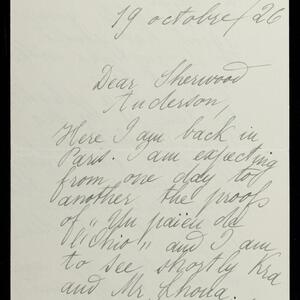 19 octobre/26
Dear Sherwood
Anderson,
Here I am back in
Paris. I am expecting
from one day to
another the proofs
of "Un païen de
l'Ohio" and I am
to see shortly Kra
and Mr.